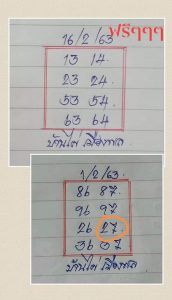 ฟรีๆๆๆ
16/2/63
13 14.
23 24.
53 54
63 64
บ้านไผ่ เมืองพล
1/2/63
86 87.
96 97
26 27.
36 37
บ้านไผ่ เมืองพล